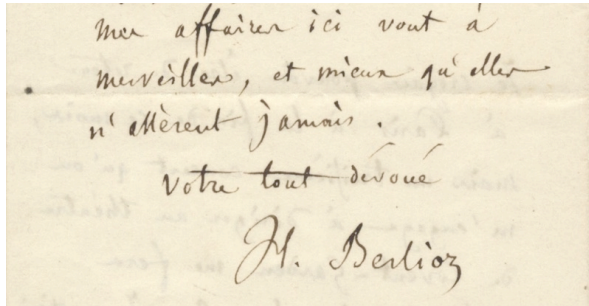 mes affaires ici vont à
merveilles, et mieux qu'elles
n'allèrent jamais.
Votre tout dévoué
H. Berlioz